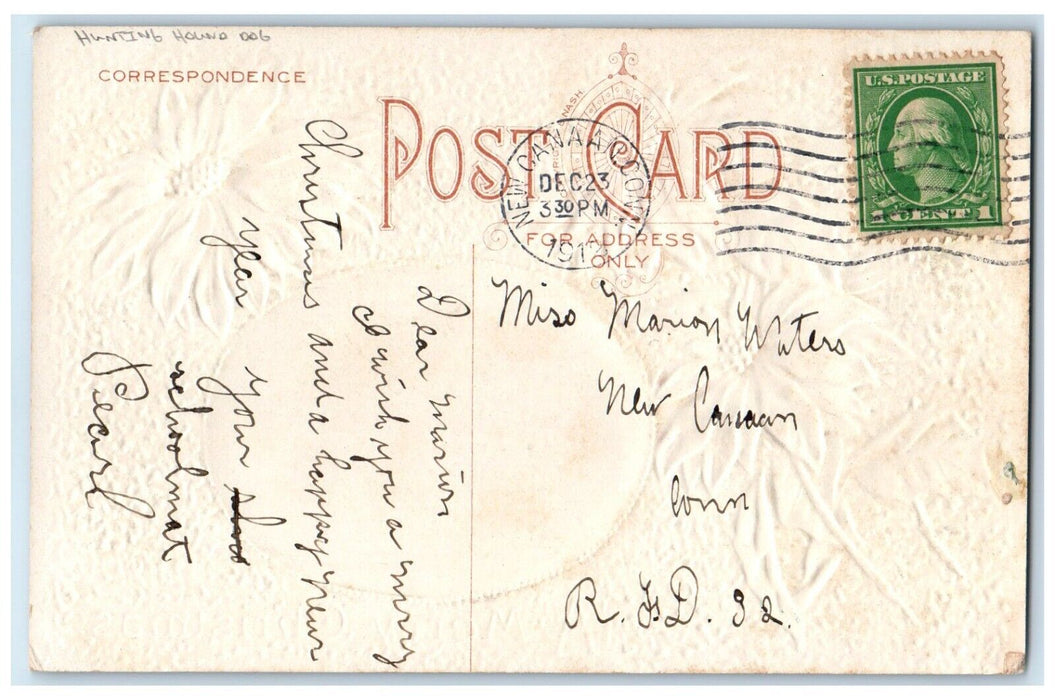 HUNTING HOUND DOG
CORRESPONDENCE
POST CARD
NASH
NEW CANAAN, CONN.
DEC 23
3 30 PM
191
U.S. POSTAGE
1 CENT 1
FOR ADDRESS
ONLY
Dear Marion
I wish you a merry
Christmas and a happy new
year your
schoolmat
Pearl
Miss Marion Waters
New Canaan
Conn
R.F.D. 32.